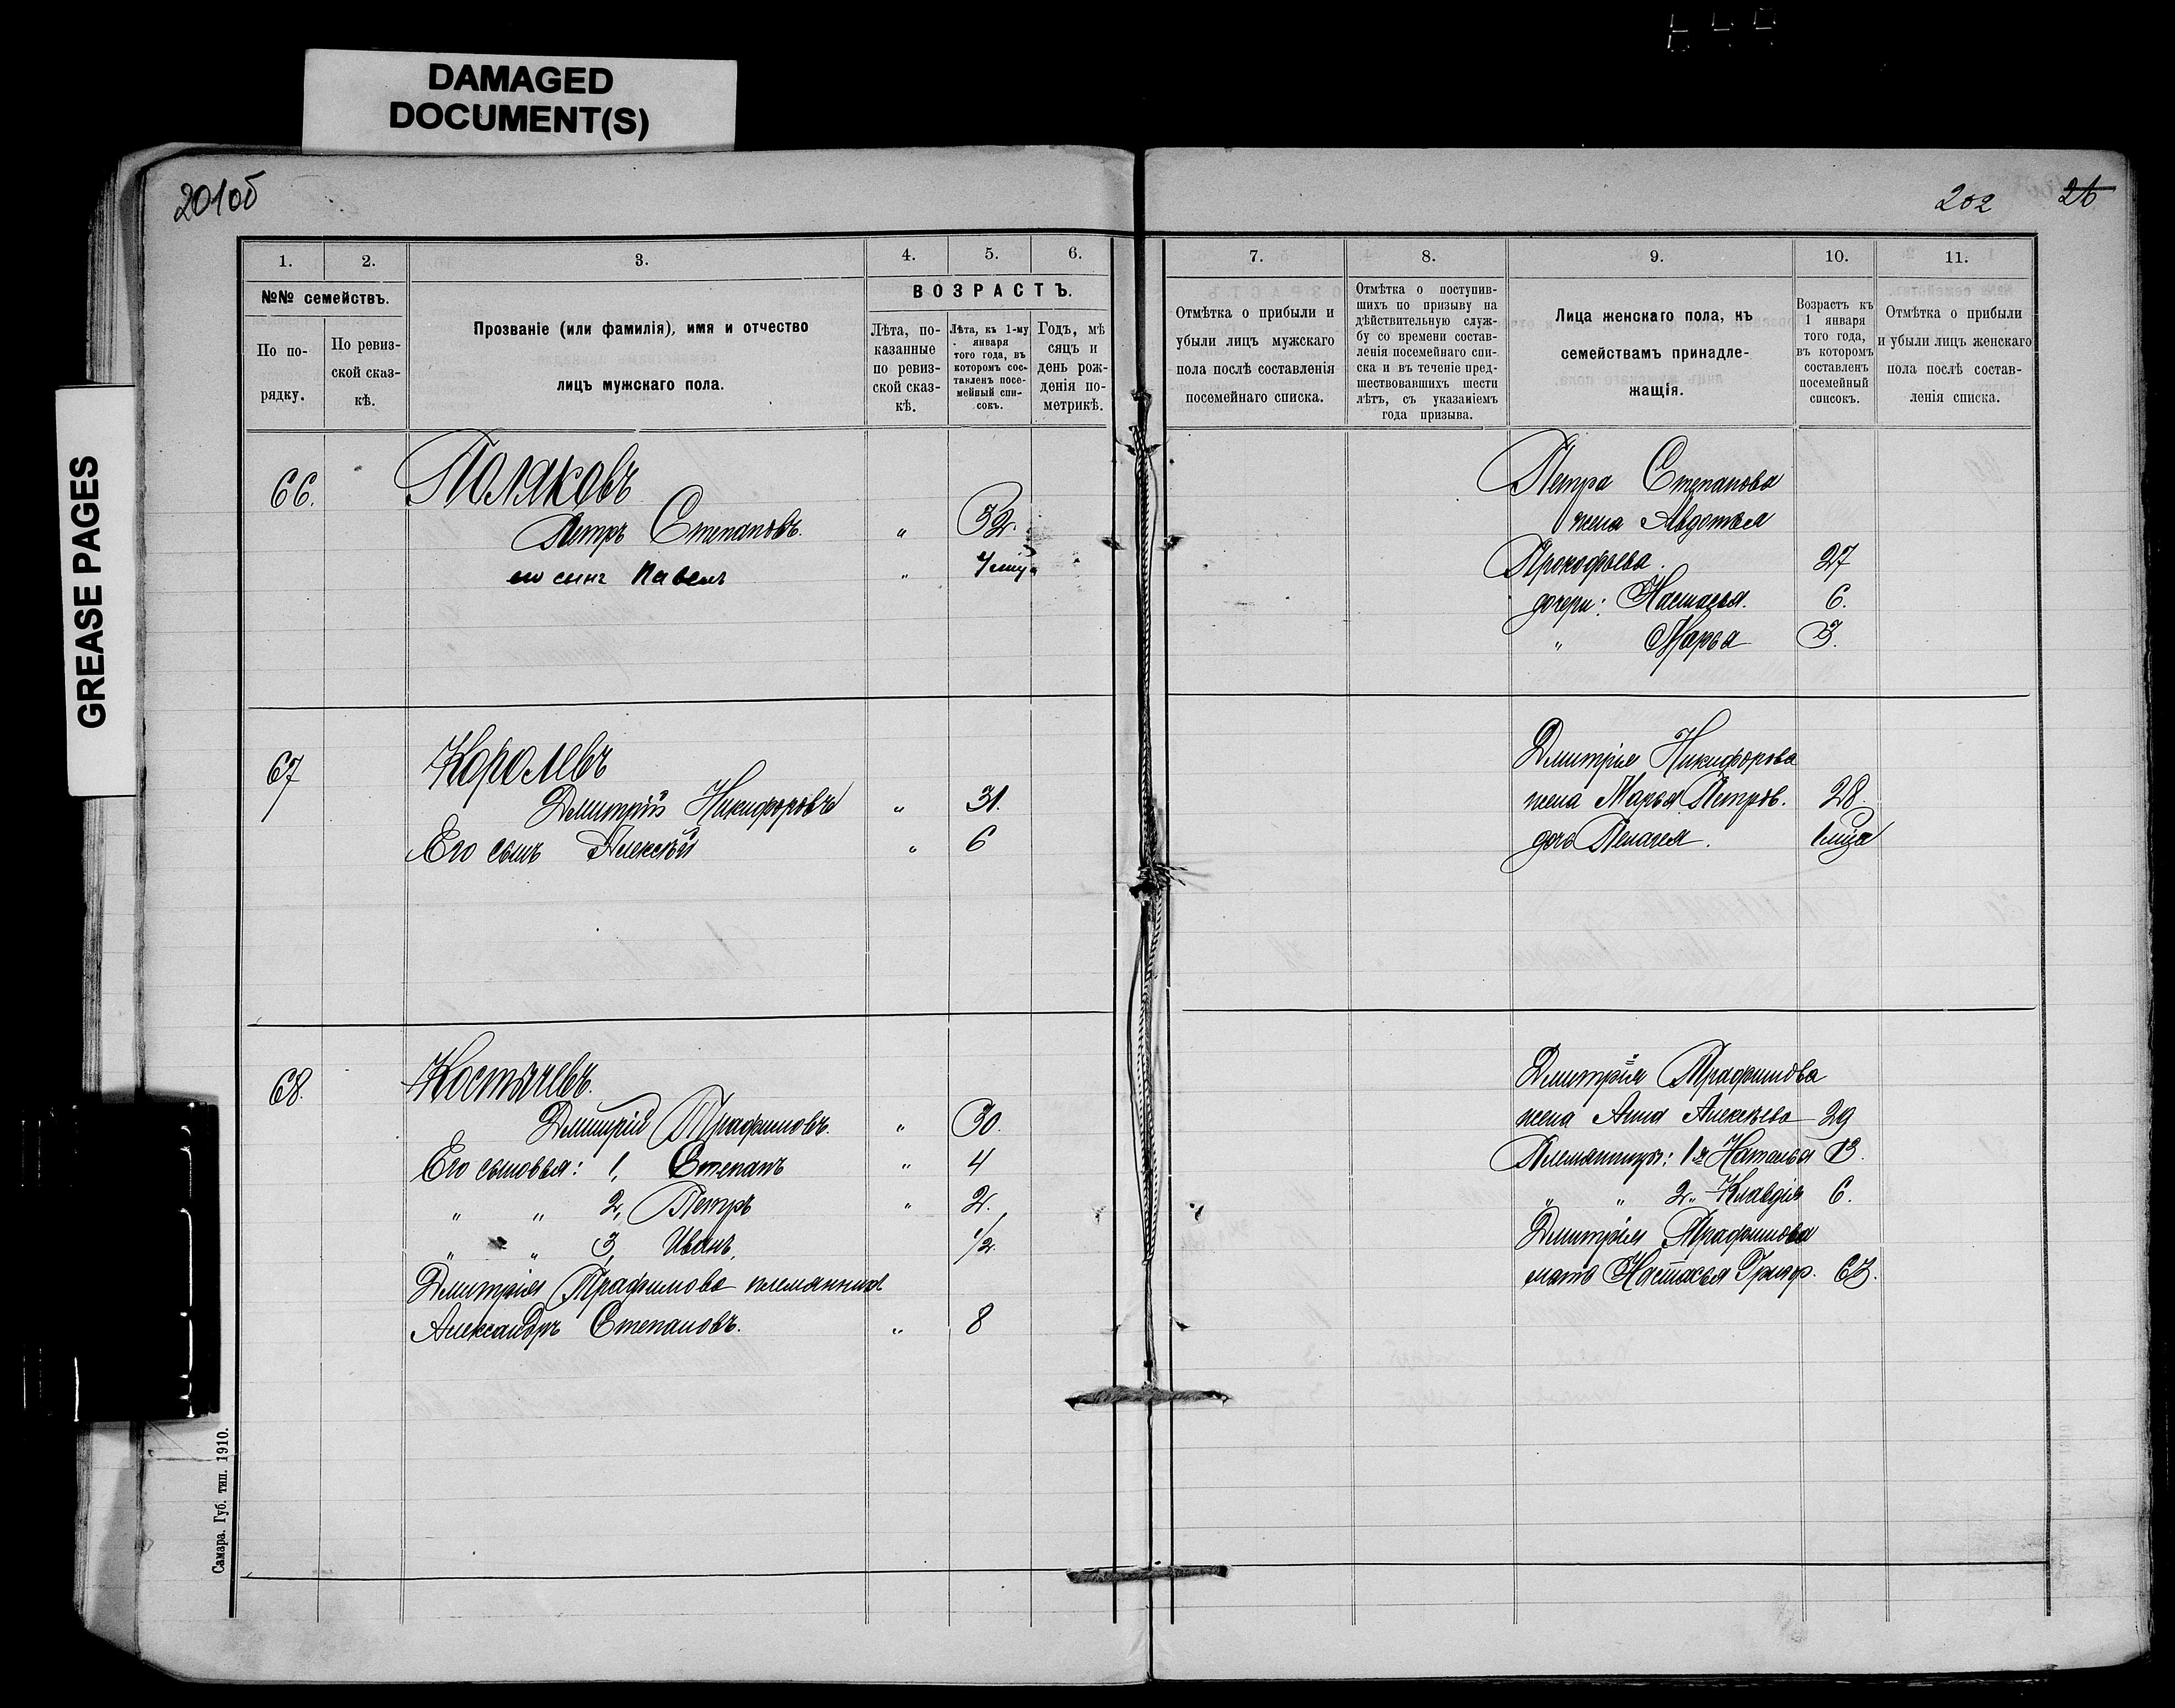 DAMAGED
DOCUMENT(S)
GREASE PAGES
201об
202 26
1.
2.
3.
4.
5.
6.
№№ семействъ.
ВОЗРАСТЪ.
По по-
рядку.
По ревиз-
ской сказ-
кѣ.
Прозваніе (или фамилія), имя и отчество
лицъ мужскаго пола.
Лѣта, по-
казанные
по ревиз-
ской сказ-
кѣ.
Лѣта, къ 1-му
января
того года, въ
которомъ сос-
тавленъ посе-
мейный спи-
сокъ.
Годъ, мѣ
сяцъ и
день рож-
денія по-
метрикѣ.
66.
Поляковъ
Петръ Степановъ. " 32.
его сынъ Павелъ "
67
Королевъ
Дмитрій Никифоровъ " 31.
Его сынъ Алексѣй " 6
68.
Костычевъ.
Дмитрій Трафимовъ. " 30.
Его сыновья: 1, Степанъ " 4
" " 2, Петръ " 2.
" " 3, Иванъ, 1/2
Дмитрія Трафимова племянникъ
Александръ Степановъ. " 8
Самара. Губ. тип. 1910.
7.
8.
9.
10.
11.
Отмѣтка о прибыли и
убыли лицъ мужскаго
пола послѣ составленія
посемейнаго списка.
Отмѣтка о поступив-
шихъ по призыву на
дѣйствительную служ-
бу со времени состав-
ленія посемейнаго спи-
ска и въ теченіе пред-
шествовавшихъ шести
лѣтъ, съ указаніемъ
года призыва.
Лица женскаго пола, къ
семействамъ принадле-
жащія.
Возрастъ къ
1 января
того года,
въ которомъ
составленъ
посемейный
списокъ.
Отмѣтка о прибыли
и убыли лицъ женскаго
пола послѣ состав-
ленія списка.
Петра Степанова
жена Авдотья
Прокофьева. 27
дочери: Настасья. 6.
" Марья 3.
Дмитрія Никифорова
жена Марья Петров. 28.
дочь Пелагея. 1 мѣца
Дмитрія Трафимова
жена Анна Алексѣева 29
Племянницы: 1я Наталья 13.
" " 2" Клавдія 6.
Дмитрія Трафимова
мать Настасья Григор. 63.